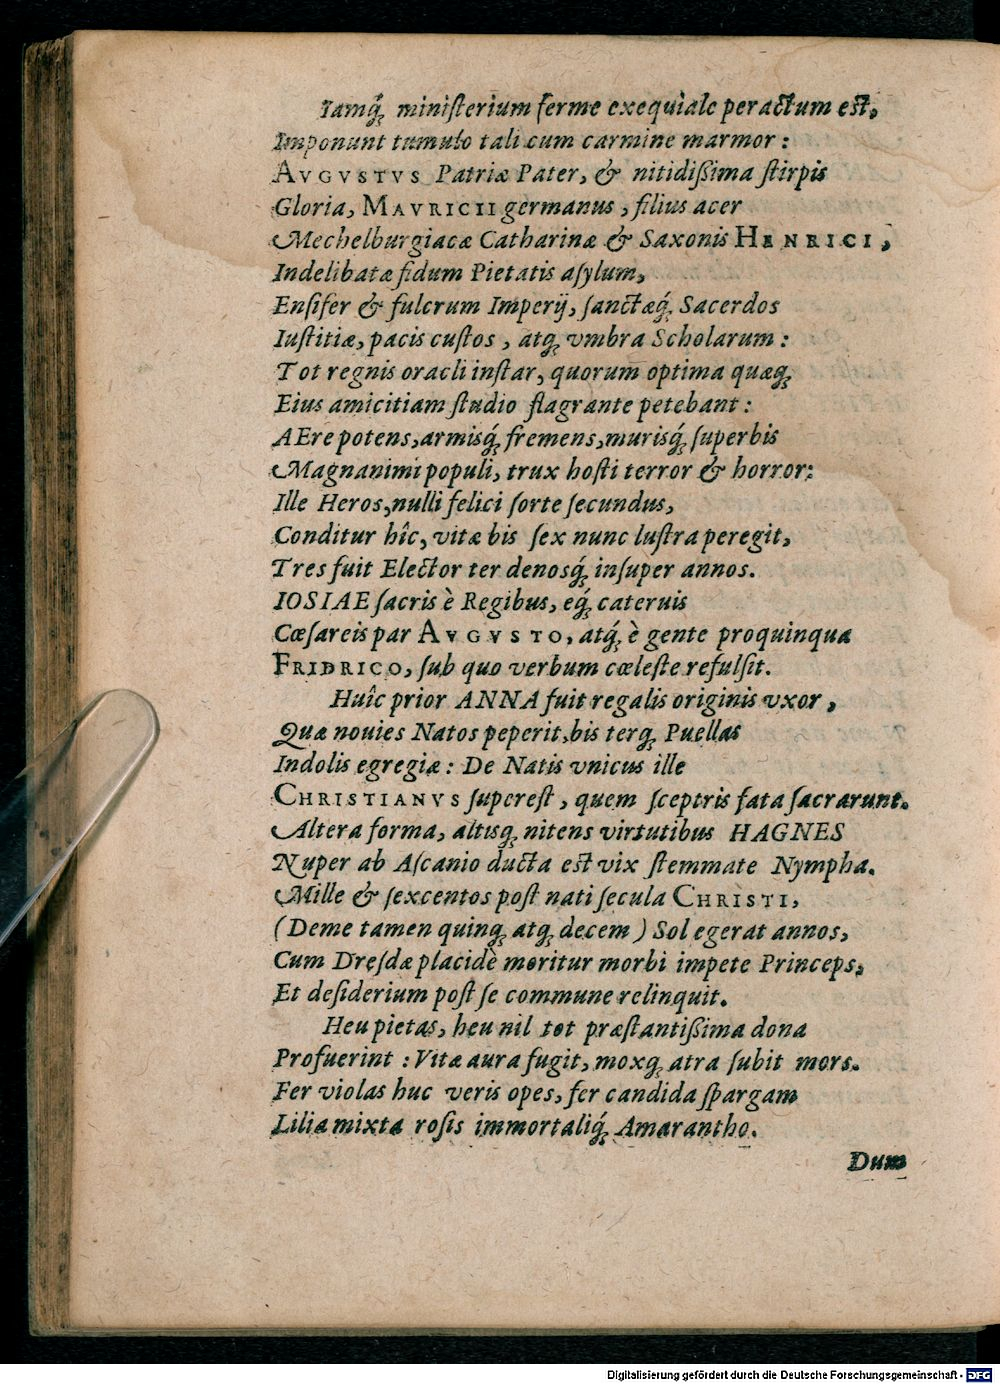 Iamq́ꝫ miniſterium ferme exequiale peractum eſt,
Imponunt tumulo tali cum carmine marmor:
AVGVSTVS Patriæ Pater, & nitidißima ſtirpis
Gloria, MAVRICII germanus, filius acer
Mechelburgiacæ Catharinæ & Saxonis HENRICI,
Indelibatæ fidum Pietatis aſylum,
Enſifer & fulcrum Imperij, ſanctæq́ꝫ Sacerdos
Iuſtitiæ, pacis cuſtos, atqꝫ vmbra Scholarum:
Tot regnis oracli inſtar, quorum optima quæqꝫ
Eius amicitiam ſtudio flagrante petebant:
AEre potens, armisq́ꝫ fremens, murisq́ꝫ ſuperbis
Magnanimi populi, trux hoſti terror & horror:
Ille Heros, nulli felici ſorte ſecundus,
Conditur hîc, vitæ bis ſex nunc luſtra peregit,
Tres fuit Elector ter denosq́ꝫ inſuper annos.
IOSIAE ſacris è Regibus, eq́ꝫ cateruis
Cæſareis par AVGVSTO, atq́ꝫ è gente proquinqua
FRIDRICO, ſub quo verbum cœleſte refulſit.
Huîc prior ANNA fuit regalis originis vxor,
Quæ nouies Natos peperit, bis terqꝫ Puellas
Indolis egregiæ: De Natis vnicus ille
CHRISTIANVS ſupereſt, quem ſceptris fata ſacrarunt.
Altera forma, altisqꝫ nitens virtutibus HAGNES
Nuper ab Aſcanio ducta eſt vix ſtemmate Nympha.
Mille & ſexcentos poſt nati ſecula CHRISTI,
(Deme tamen quinqꝫ atqꝫ decem) Sol egerat annos,
Cum Dreſdæ placidè moritur morbi impete Princeps,
Et deſiderium poſt ſe commune relinquit.
Heu pietas, heu nil tot præſtantißima dona
Profuerint: Vitæ aura fugit, moxqꝫ atra ſubit mors.
Fer violas huc veris opes, fer candida ſpargam
Lilia mixta roſis immortaliq́ꝫ Amarantho.
Dum
Digitalisierung gefördert durch die Deutsche Forschungsgemeinschaft - DFG